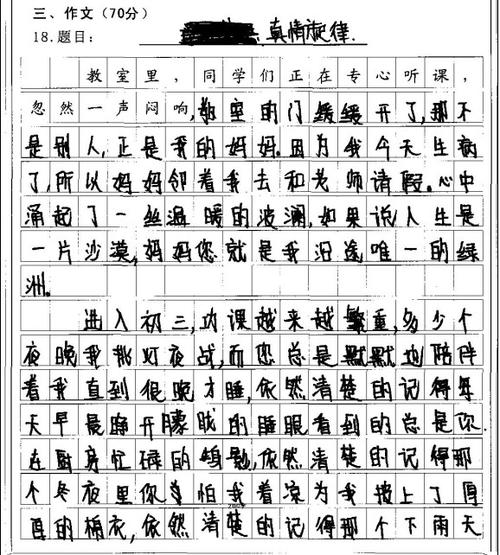 三、作文(70分)
18.题目： 真情旋律.
教室里，同学们正在专心听课，
忽然一声闷响，教室的门缓缓开了，那不
是别人，正是我的妈妈。因为我今天生病
了，所以妈妈领着我去和老师请假。心中
涌起了一丝温暖的波澜，如果说人生是
一片沙漠，妈妈您就是我沿途唯一的绿
洲。
进入初三，功课越来越繁重，多少个
夜晚我挑灯夜战，而您总是默默地陪伴
着我直到很晚才睡，依然清楚的记得每
天早晨睁开朦胧的睡眼看到的总是你
在厨房忙碌的身影，依然清楚的记得那
个冬夜里你害怕我着凉为我披上了厚
厚的棉衣，依然清楚的记得那个下雨天